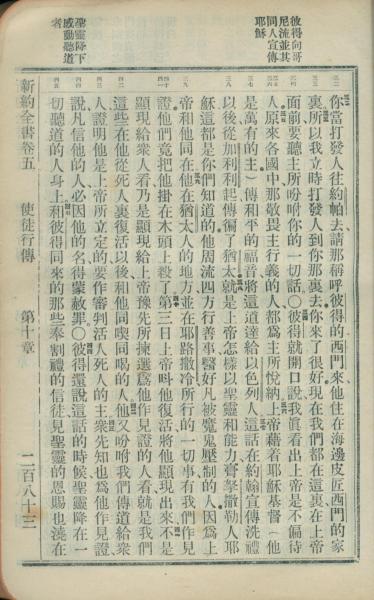 彼得向哥
尼流並其
同人宣傳
耶穌
聖靈降下
感動聽道
者
你當打發人往約帕去請那稱呼彼得的西門來他住在海邊皮匠西門的家
裏所以我立時打發人到你那裏去你來了很好現在我們都在這裏在上帝
面前要聽主所吩咐你的一切話〇彼得就開口說我眞看出上帝是不偏待
人原來各國中那敬畏主行義的人都爲主所悅納上帝藉着耶穌基督(他
是萬有的主)傳和平的福音將這道達給以色列人這話在約翰宣傳洗禮
以後從加利利起傳徧了猶太就是上帝怎樣以聖靈和能力膏拏撒勒人耶
穌這都是你們知道的他周流四方行善事醫好凡被魔鬼壓制的人因爲上
帝和他同在他在猶太人的地方並在耶路撒冷所行的一切事有我們作見
證他們竟把他掛在木頭上殺了第三日上帝呌他復活將他顯現出來不是
顯現給衆人看乃是顯現給上帝豫先所揀選爲他作見證的人看就是我們
這些在他從死人裏復活以後和他同喫同喝的人他又吩咐我們傳道給衆
人證明他是上帝所立定的要作審判活人死人的主衆先知也爲他作見證
說凡信他的人必因他的名得蒙赦罪〇彼得還說這話的時候聖靈降在一
切聽道的人身上和彼得同來的那些奉割禮的信徒見聖靈的恩賜也澆在
新約全書卷五 使徒行傳 第十章 二百八十三